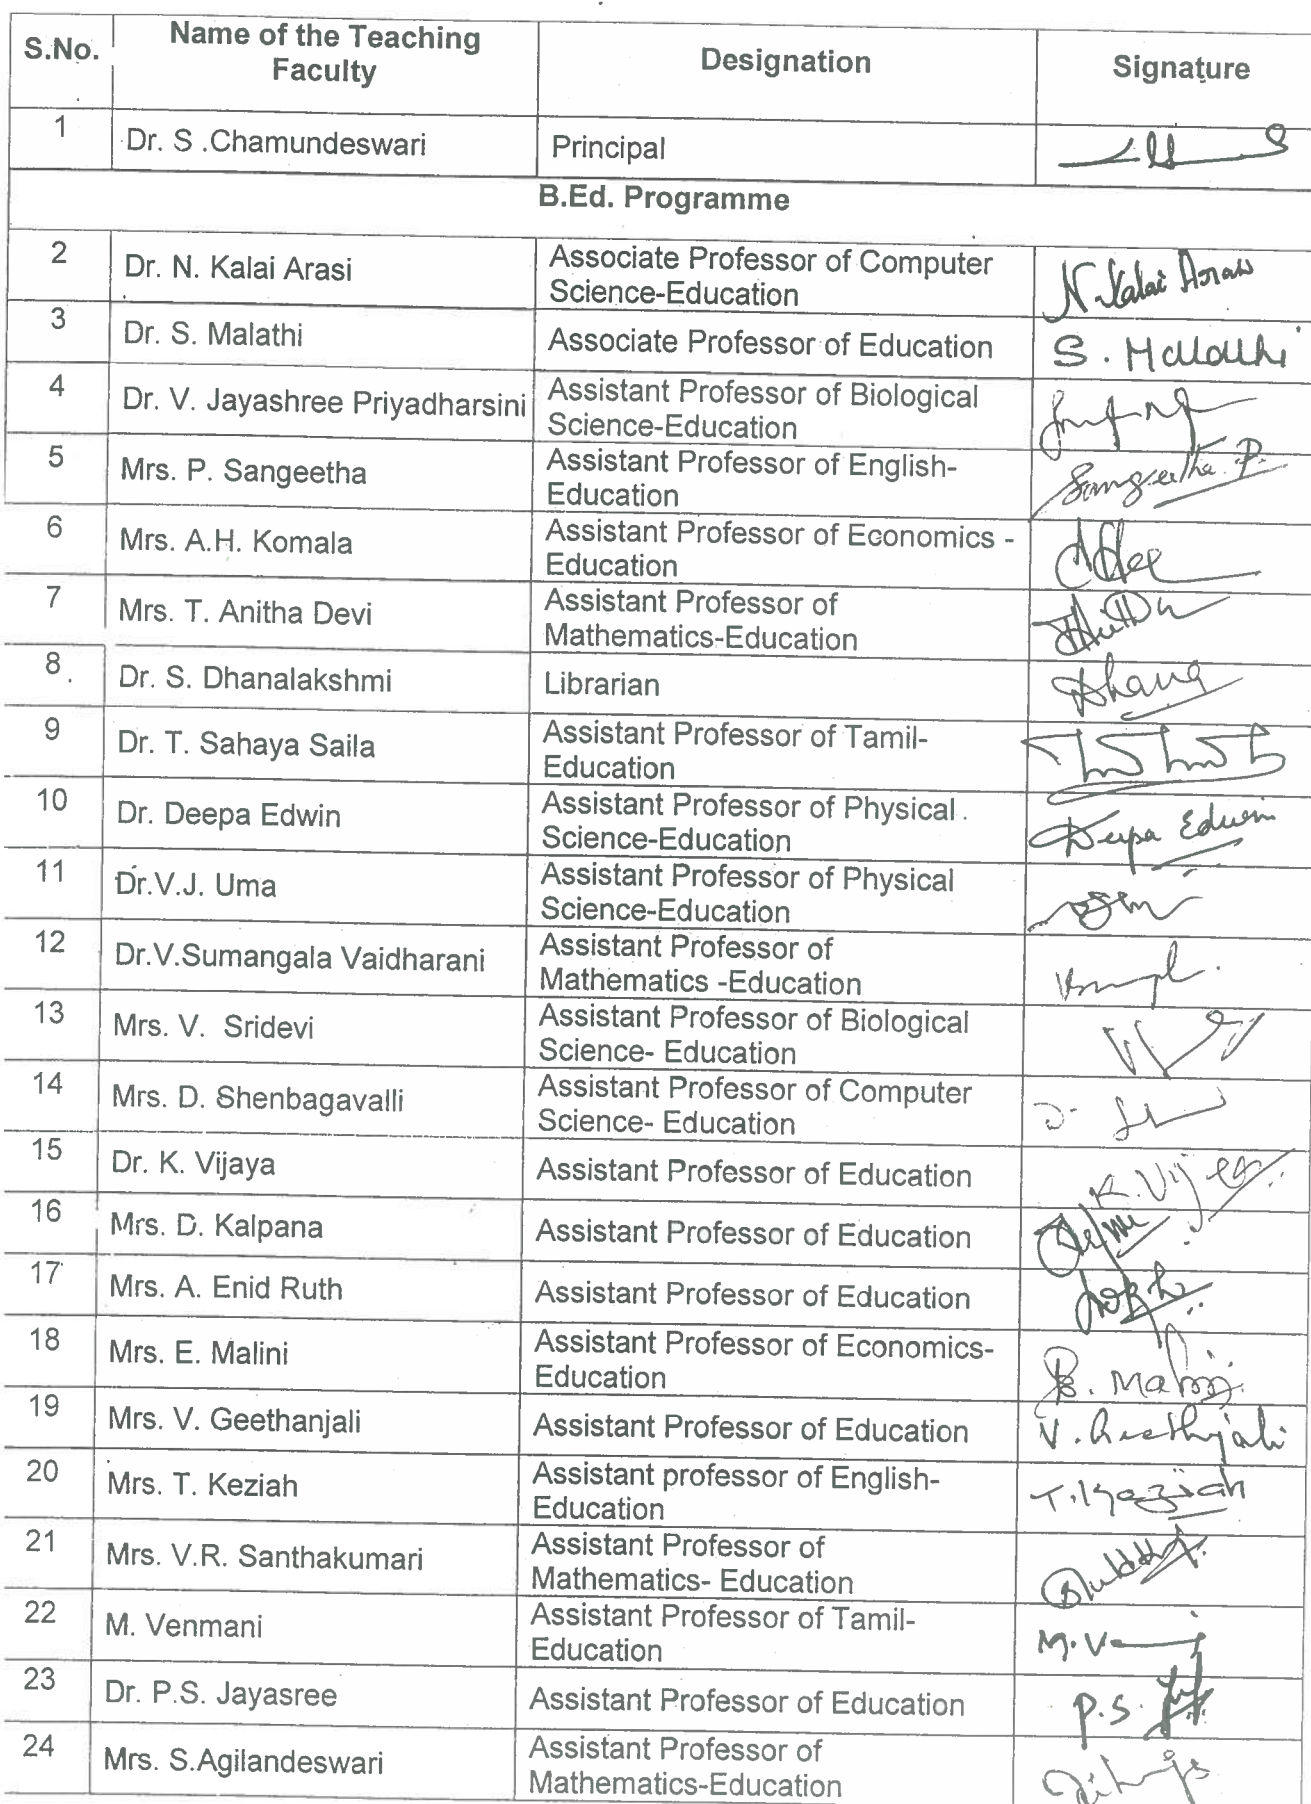 S.No.
Name of the Teaching
Faculty
Designation
Signature
1
Dr. S .Chamundeswari
Principal
B.Ed. Programme
2
Dr. N. Kalai Arasi
Associate Professor of Computer
Science-Education
N. Kalai Arasi
3
Dr. S. Malathi
Associate Professor of Education
S. Malathi
4
Dr. V. Jayashree Priyadharsini
Assistant Professor of Biological
Science-Education
5
Mrs. P. Sangeetha
Assistant Professor of English-
Education
Sangeetha. P.
6
Mrs. A.H. Komala
Assistant Professor of Economics -
Education
7
Mrs. T. Anitha Devi
Assistant Professor of
Mathematics-Education
8
Dr. S. Dhanalakshmi
Librarian
Dhana
9
Dr. T. Sahaya Saila
Assistant Professor of Tamil-
Education
10
Dr. Deepa Edwin
Assistant Professor of Physical
Science-Education
Deepa Edwin
11
Dr.V.J. Uma
Assistant Professor of Physical
Science-Education
12
Dr.V.Sumangala Vaidharani
Assistant Professor of
Mathematics -Education
13
Mrs. V. Sridevi
Assistant Professor of Biological
Science- Education
14
Mrs. D. Shenbagavalli
Assistant Professor of Computer
Science- Education
15
Dr. K. Vijaya
Assistant Professor of Education
16
Mrs. D. Kalpana
Assistant Professor of Education
17
Mrs. A. Enid Ruth
Assistant Professor of Education
18
Mrs. E. Malini
Assistant Professor of Economics-
Education
E. Malini
19
Mrs. V. Geethanjali
Assistant Professor of Education
V. Geethanjali
20
Mrs. T. Keziah
Assistant professor of English-
Education
T. Keziah
21
Mrs. V.R. Santhakumari
Assistant Professor of
Mathematics- Education
22
M. Venmani
Assistant Professor of Tamil-
Education
23
Dr. P.S. Jayasree
Assistant Professor of Education
P.S.
24
Mrs. S.Agilandeswari
Assistant Professor of
Mathematics-Education